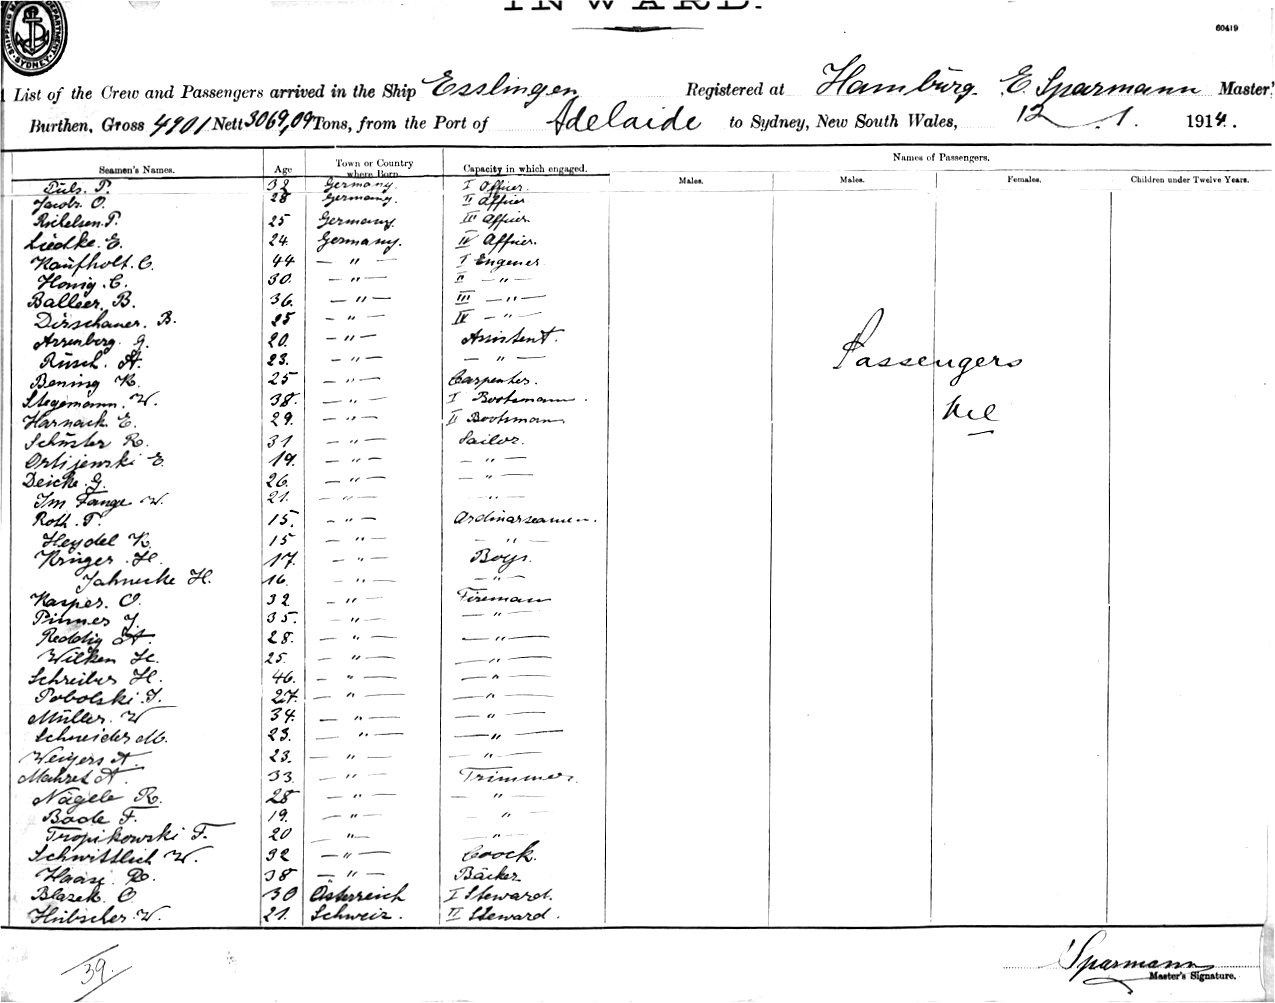 INWARD.
60419
SHIPPING DEPARTMENT SYDNEY
List of the Crew and Passengers arrived in the Ship Esslingen Registered at Hamburg. E. Sparmann Master
Burthen, Gross 4901 Nett 3069,09 Tons, from the Port of Adelaide to Sydney, New South Wales, 12.1. 1914.
Seamen's Names. Age Town or Country where Born. Capacity in which engaged. Names of Passengers.
Males. Males. Females. Children under Twelve Years.
Puls. P. 38 Germany. I Officer.
Jacob. O. 28 Germany. II Officer
Richelsen. P. 25 Germany. III Officer.
Liedke. E. 24. Germany. IV Officer.
Kaufholt. C. 44 — " — I Engener
Honig. C. 30. — " — II — " —
Balleer. B. 36. — " — III — " —
Dirschauer. B. 25 — " — IV — " —
Arrenberg. G. 20. — " — Assistent.
Rüsch. A. 23. — " — — " —
Bening K. 25 — " — Carpenter.
Stegemann. W. 38. — " — I Bootsmann.
Harnack. E. 29. — " — II Bootsmann
Schüster R. 31 — " — Sailor.
Ortijewski E. 19. — " — — " —
Deicke. G. 26. — " — — " —
Im Fange W. 21. — " — — " —
Roth. P. 15. — " — Ordinarseamen.
Heydel K. 15 — " — — " —
Krüger. H. 17. — " — Boys.
Jahnecke H. 16. — " — — " —
Kasper. O. 32 — " — Fireman
Pinnes J. 35. — " — — " —
Reddig A. 28. — " — — " —
Wilken H. 25. — " — — " —
Schreiber H. 46. — " — — " —
Pobolski. J. 27. — " — — " —
Müller. W 34. — " — — " —
Schneider M. 23. — " — — " —
Weigers A. 23. — " — — " —
Mahret A. 33 — " — Trimmer.
Nägele R. 28 — " — — " —
Bode F. 19. — " — "
Tropikowski F. 20 — " — — " —
Schwittlich W. 32 — " — Coock.
Haase R. 38 — " — Bäcker
Blazek O 30 Österreich I Steward.
Hübscher. W. 21. Schweiz. II Steward.
Passengers
Nil
39.
Sparmann
Master's Signature.